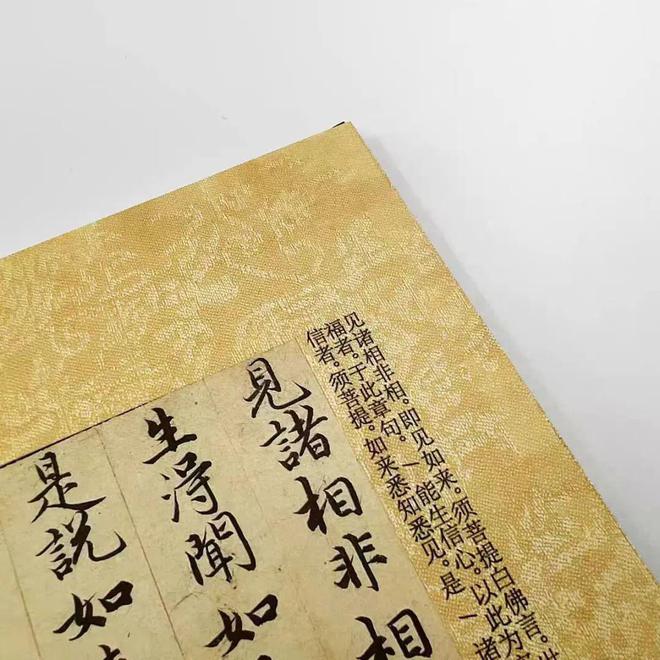 见诸相非相。即见如来。须菩提白佛言。
福者。于此章句。一能生信心。以此为
信者。须菩提。如来悉知悉见。是一诸
見諸相非相
生得聞如
是說如